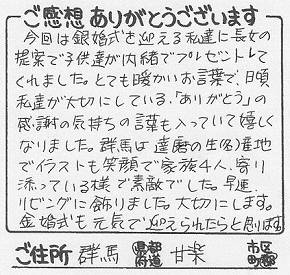 ご感想ありがとうございます
今回は銀婚式を迎える私達に長女の
提案で子供達が内緒でプレゼントして
くれました。とても暖かいお言葉で、日頃
私達が大切にしている、「ありがとう」の
感謝の気持ちの言葉も入っていて嬉しく
なりました。群馬は達磨の生産地
でイラストも笑顔で家族4人、寄り
添っている様で素敵でした。早速、
リビングに飾りました。大切にします。
金婚式も元気で迎えられたらと思います
ご住所 群馬 県都府道 甘楽 市区町郡